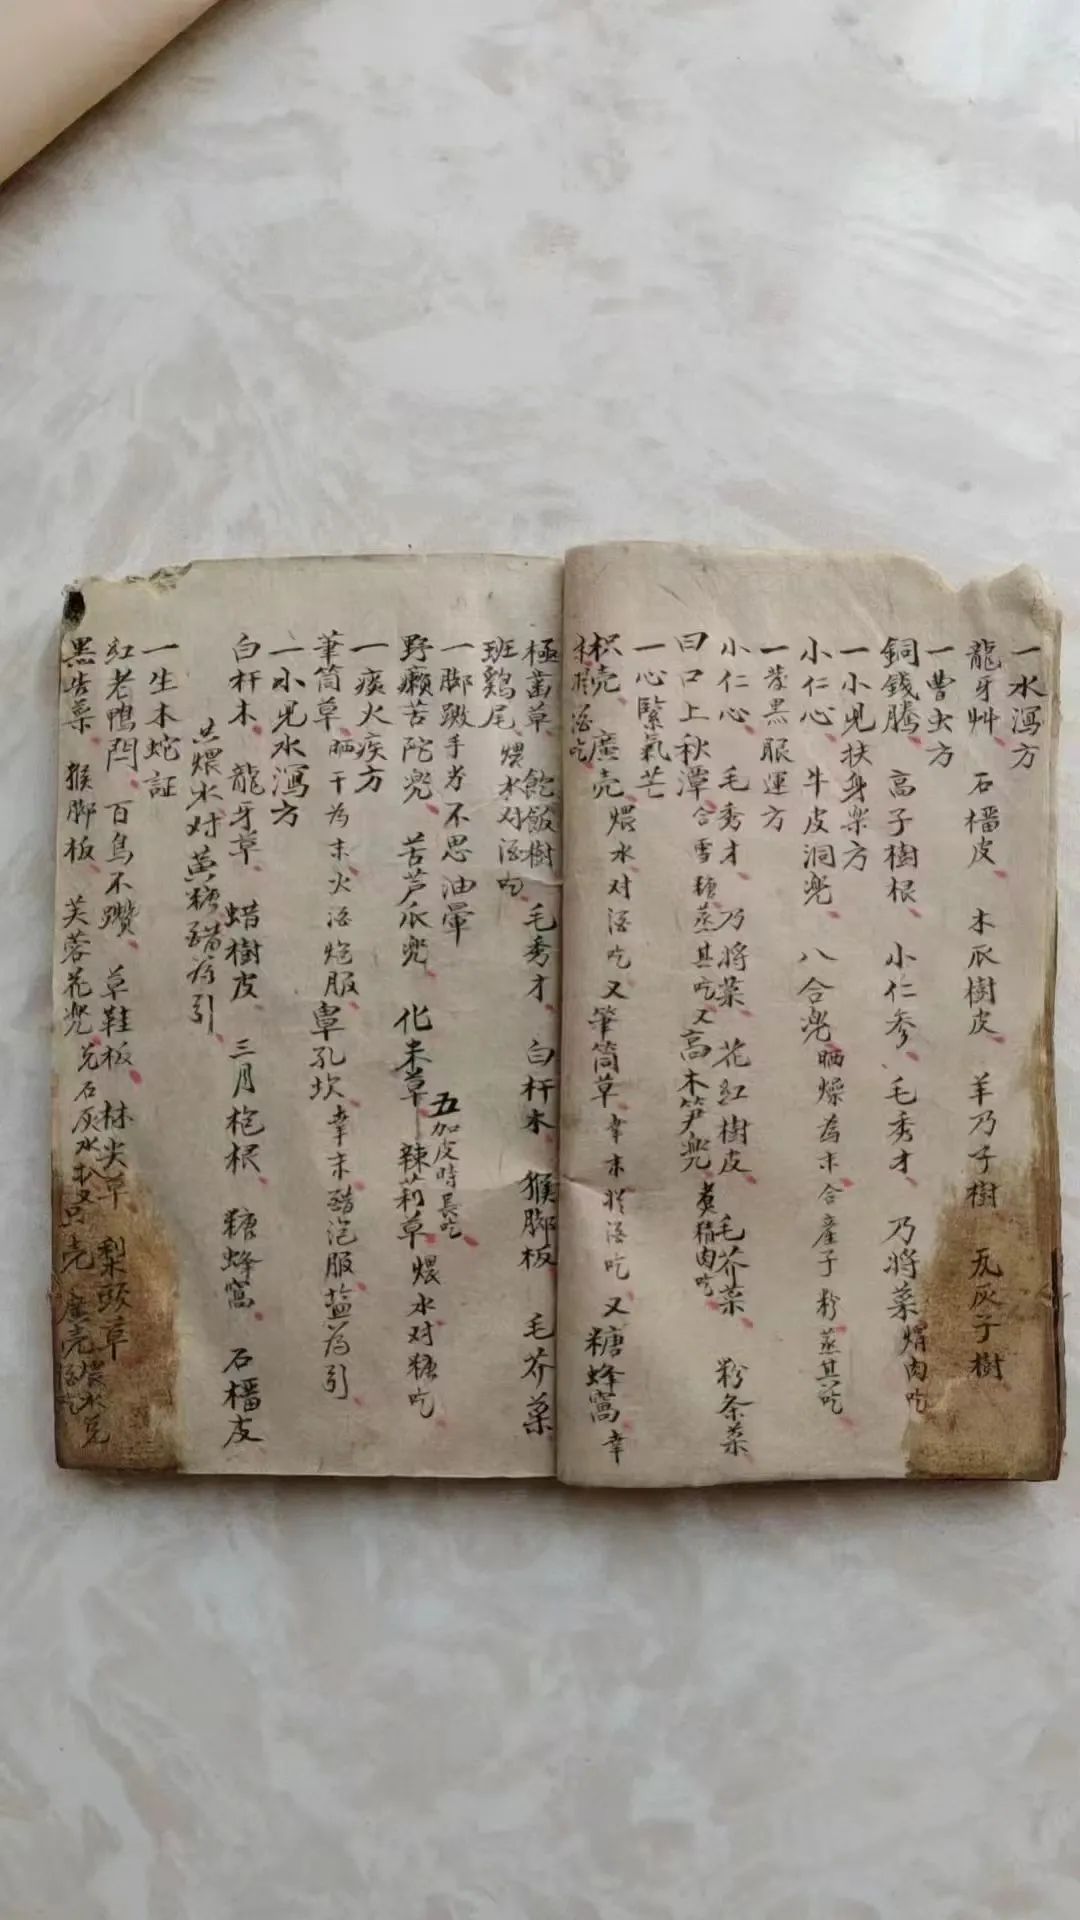 一水瀉方
龍牙艸 石榴皮 木瓜樹皮 羊乃子樹 瓦灰子樹
一曹虫方
銅錢騰 高子樹根 小仁参 毛秀才 乃將菜 煝肉吃
一小児扶身架方
小仁心 牛皮洞兜 八合兜 晒燥為末合産子粉蒸其吃
一蒙黒眼運方
小仁心 毛秀才 乃將菜 花紅樹皮 毛芥菜 粉条菜
曰口上秋潭 合雪糖蒸其吃 又高木笋兜 煑精肉吃
一心緊氣芒
枳壳 廣壳 煨水对酒吃 又筆筒草 幸末 酒吃 又糖蜂窩 幸
末 酒吃
極茵草 飽飯樹 毛秀才 白杆木 猴脚板 毛芥菜
班鷄尾 煨水对酒吃
一脚 手劳不思油暈
野癩苦陀兜 苦芦瓜兜 化末草 辣莉草 煨水对糖吃
五加皮時長吃
一痰火疾方
筆筒草 晒干为末火酒炮服 孔坎 幸末醋泡服盐为引
一小児水瀉方
白杆木 龍牙草 蜡樹皮 三月枹根 糖蜂窩 石榴皮
共煨水对黄糖醋为引
一生木蛇証
紅老鴨閂 百鳥不躦 草鞋板 林尖草 梨頭草 煨水兑
黒 菜 猴脚板 芙蓉花兜 兑石灰水 只壳 廣壳 酒吃